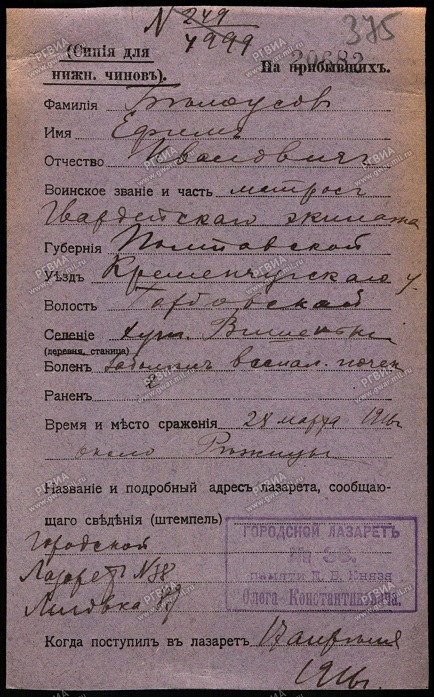 N 249
7999
375
20682
(Синія для
нижн. чиновъ).
На прибывшихъ.
Фамилія Бѣлоусов
Имя Ефимъ
Отчество Ивановичъ
Воинское званіе и часть матрос
Гвардейскаго экипажа
Губернія Полтавской
Уѣздъ Кременчугскаго у.
Волость
Селеніе хут.
(деревня, станица)
Боленъ воспал. почек
Раненъ
Время и мѣсто сраженія 28 марта 1916г
около
Названіе и подробный адресъ лазарета, сообщаю-
щаго свѣдѣнія (штемпель)
Городской
Лазарет N 38
Лиговка
ГОРОДСКОЙ ЛАЗАРЕТЪ
№ 38.
памяти К. В. Князя
Олега Константиновича.
Когда поступилъ въ лазаретъ 17 апрѣля
1916г.
РГВИА
www.gwar.mil.ru